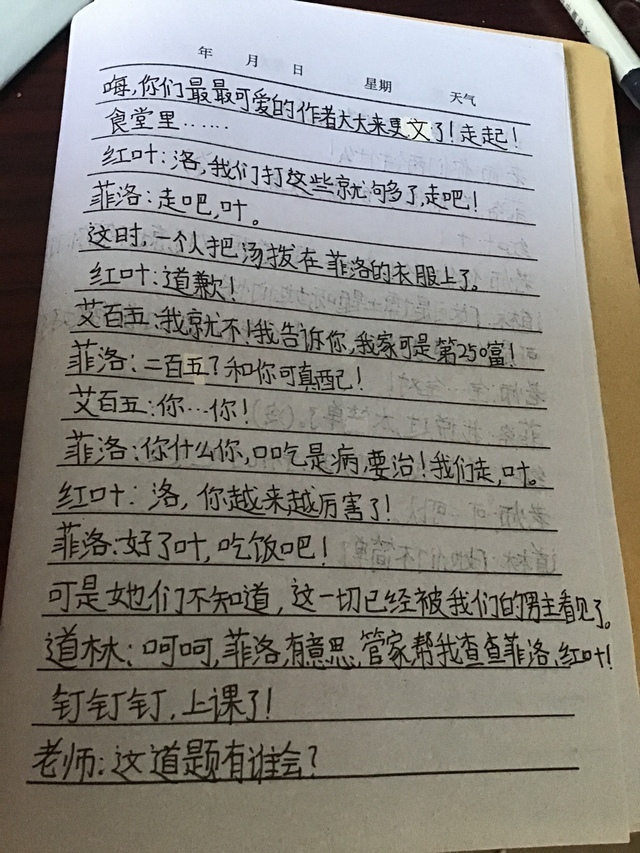 年 月 日 星期 天气
嗨,你们最最可爱的作者大大来更文了!走起!
食堂里……
红叶:洛,我们打这些就够了,走吧!
菲洛:走吧,叶。
这时,一个人把汤拨在菲洛的衣服上了。
红叶:道歉!
艾百五:我就不!我告诉你,我家可是第250富!
菲洛:二百五?和你可真配!
艾百五:你…你!
菲洛:你什么你,口吃是病,要治!我们走,叶。
红叶:洛,你越来越厉害了!
菲洛:好了叶,吃饭吧!
可是她们不知道,这一切已经被我们的男主看见了。
道林:呵呵,菲洛,有意思,管家帮我查查菲洛、红叶!
钉钉钉,上课了!
老师:这道题有谁会?